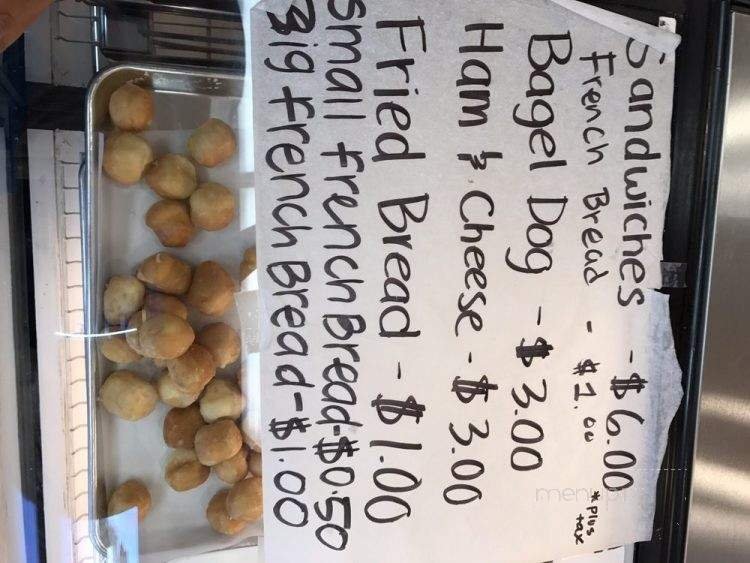 Sandwiches - $6.00
*plus tax
French Bread - $1.00
Bagel Dog - $3.00
Ham & Cheese - $3.00
Fried Bread - $1.00
small French Bread - $0.50
Big French Bread - $1.00
menupi